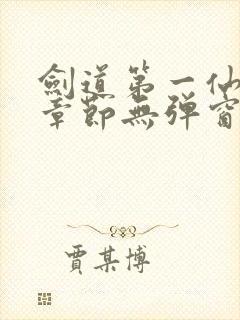 劍道第一仙
章節無彈窗
賈某博